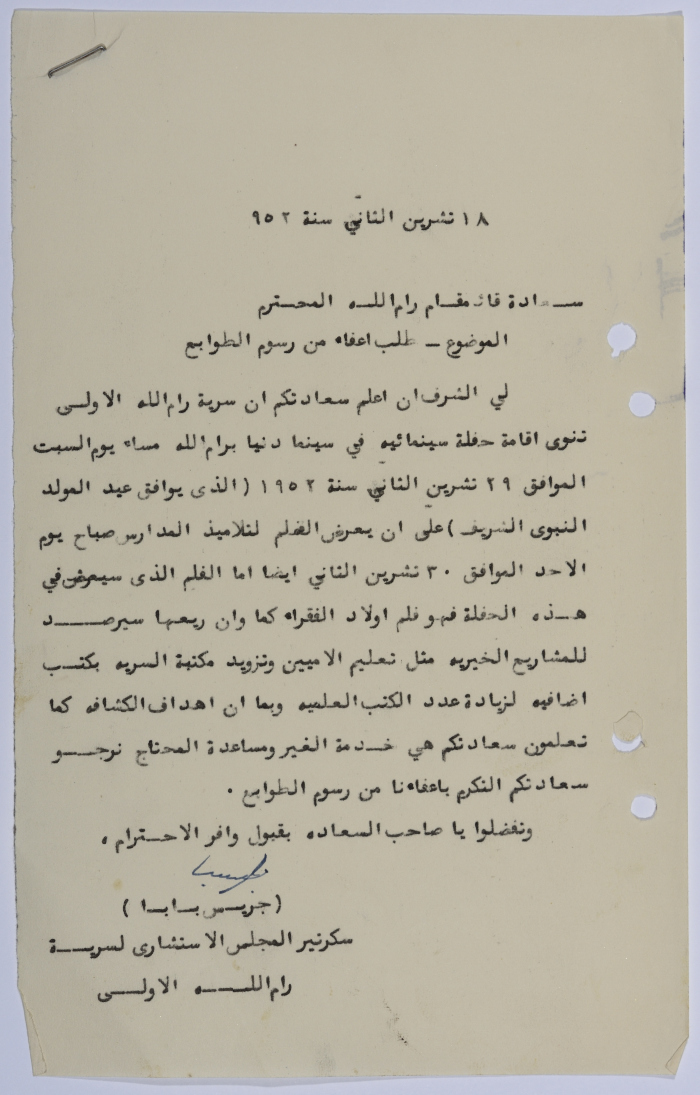 ١٨ تشرين الثاني سنة ٩٥٢
سعادة قائمقام رام الله المحترم
الموضوع ـ طلب اعفاء من رسوم الطوابع
لي الشرف ان اعلم سعادتكم ان سرية رام الله الاولى
تنوى اقامة حفلة سينمائيه في سينما دنيا برام الله مساء يوم السبت
الموافق ٢٩ تشرين الثاني سنة ١٩٥٢ (الذى يوافق عيد المولد
النبوى الشريف) على ان يعرض الفلم لتلاميذ المدارس صباح يوم
الاحد الموافق ٣٠ تشرين الثاني ايضا اما الفلم الذى سيعرض في
هذه الحفلة فهو فلم اولاد الفقراء كما وان ريعها سيرصد
للمشاريع الخيريه مثل تعليم الاميين وتزويد مكتبة السريه بكتب
اضافيه لزيادة عدد الكتب العلميه وبما ان اهداف الكشافه كما
تعلمون سعادتكم هي خدمة الغير ومساعدة المحتاج نرجو
سعادتكم التكرم باعفاءنا من رسوم الطوابع .
وتفضلوا يا صاحب السعاده بقبول وافر الاحترام ،
(جريس بابا)
سكرتير المجلس الاستشارى لسرية
رام الله الاولى